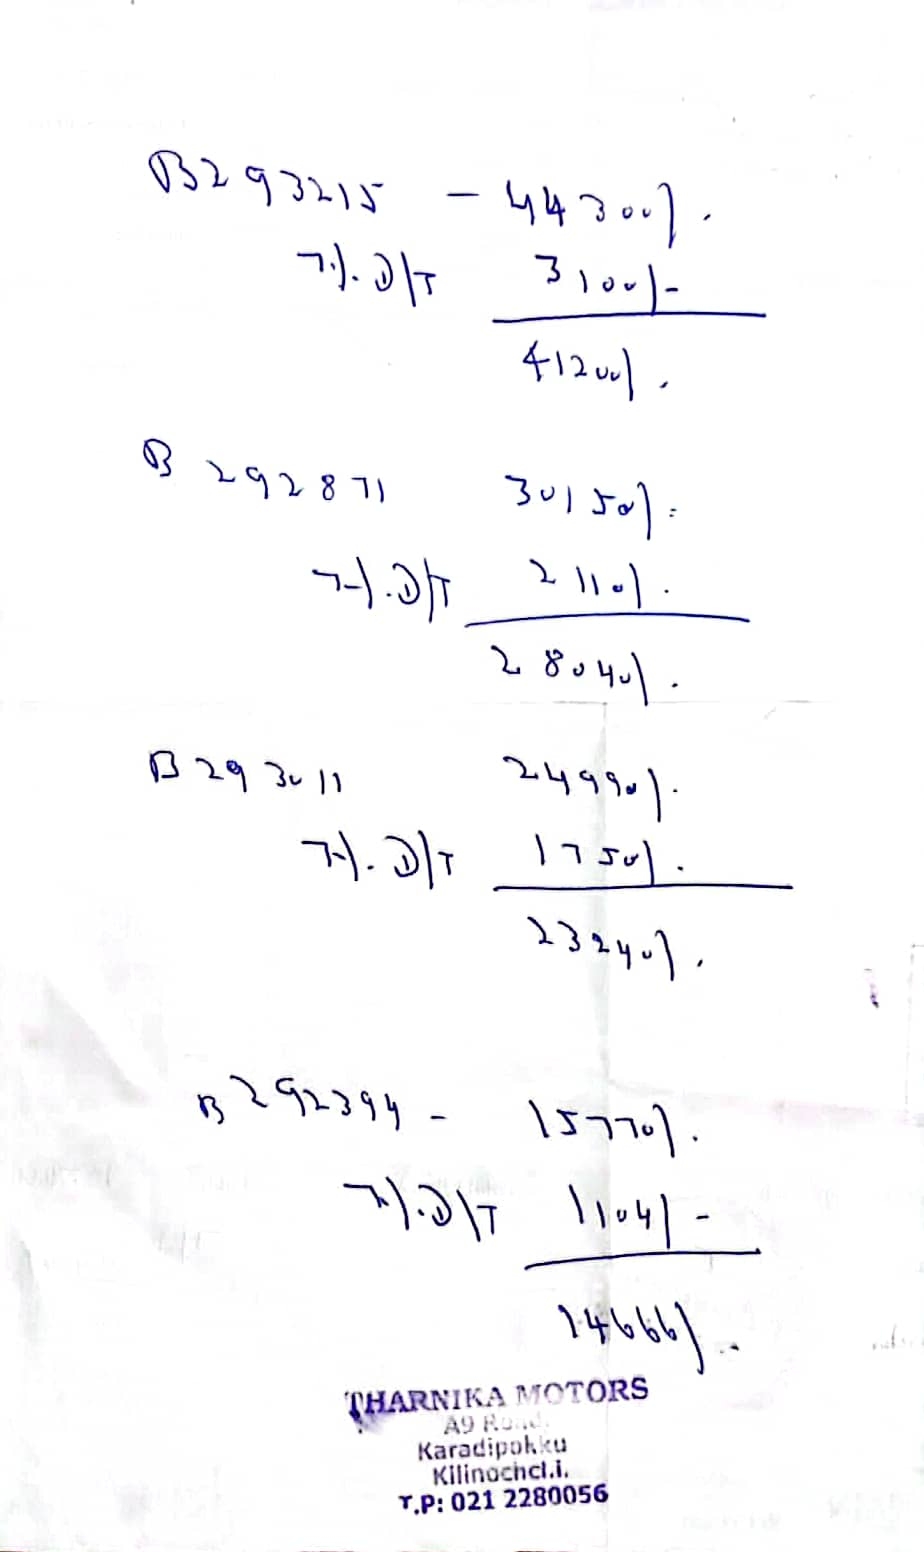 B293215 - 44300/.
7%. D/T 3100/-
41200/.
B 292871 30150/.
7%. D/T 2110/.
28040/.
B 293011 24990/.
7%. D/T 1750/.
23240/.
B 292394 - 15770/.
7%. D/T 1104/-
14666/..
THARNIKA MOTORS
A9 Road,
Karadipokku
Kilinochchi.
T.P: 021 2280056